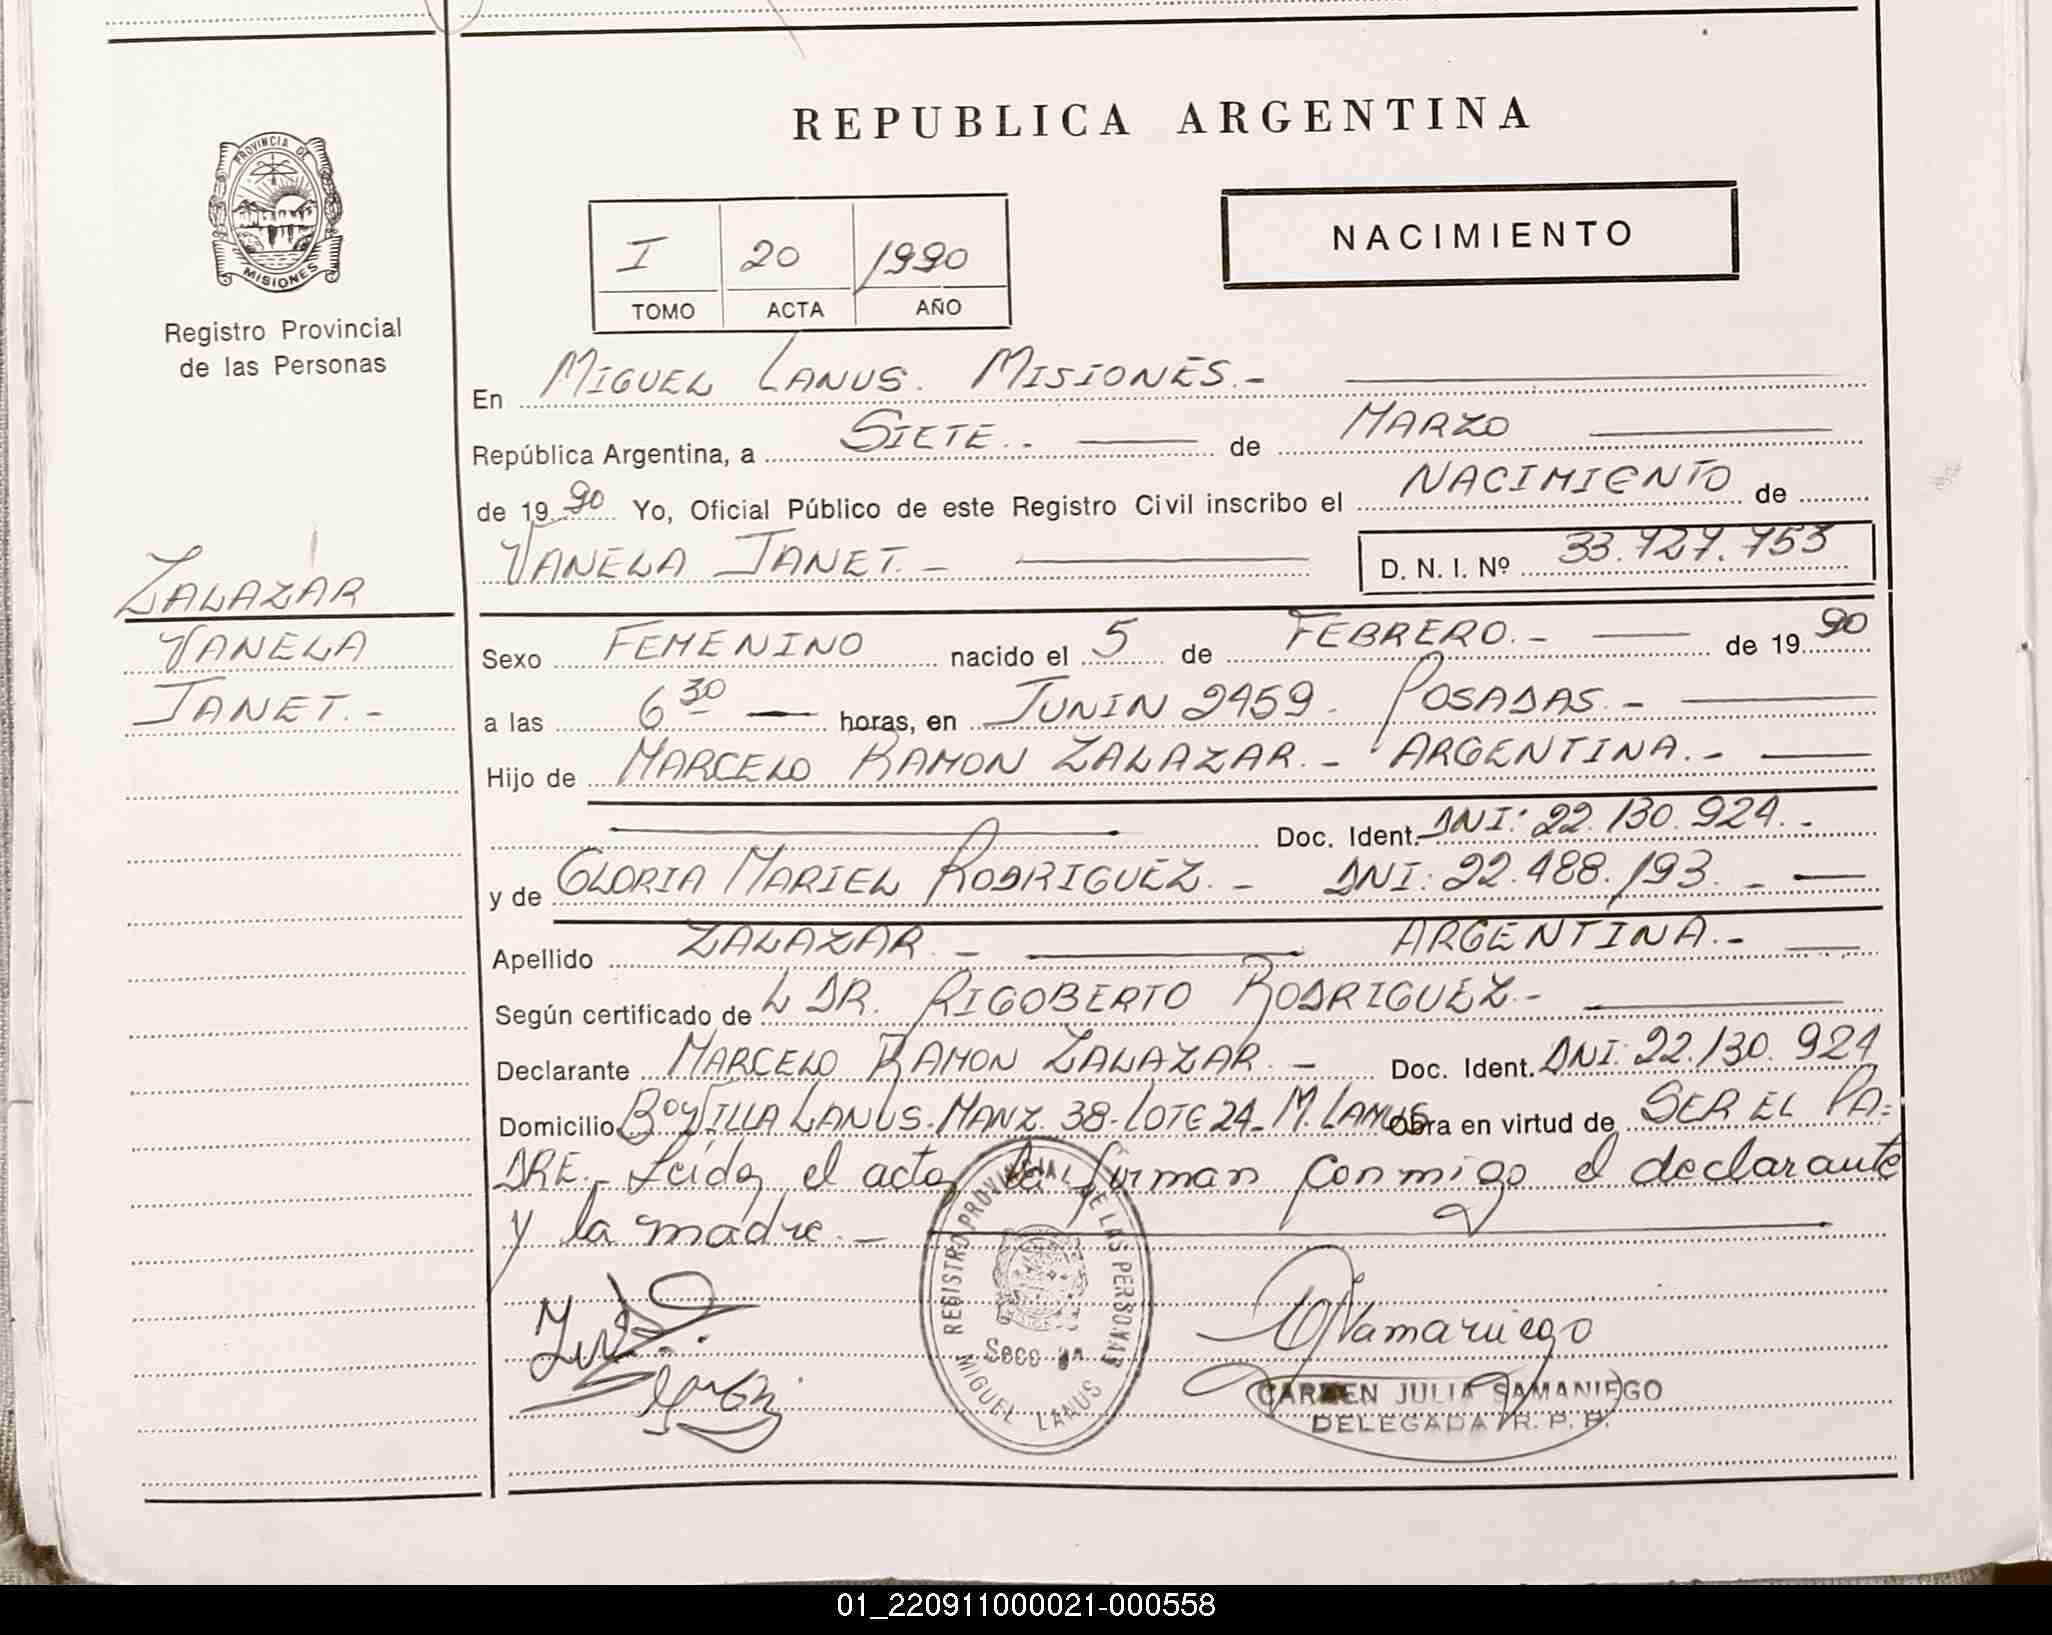 REPUBLICA ARGENTINA
PROVINCIA DE
MISIONES
Registro Provincial
de las Personas
NACIMIENTO
I 20 1990
TOMO ACTA AÑO
En MIGUEL LANUS. MISIONES.-
República Argentina, a SIETE.- de MARZO
de 19 90 Yo, Oficial Público de este Registro Civil inscribo el NACIMIENTO de
VANELA JANET.- D. N. I. Nº 33.727.753
ZALAZAR
VANELA
JANET.-
Sexo FEMENINO nacido el 5 de FEBRERO.- de 19 90
a las 6 30 horas, en JUNIN 2459. POSADAS.-
Hijo de MARCELO RAMON ZALAZAR.- ARGENTINA.-
Doc. Ident. DNI: 22.130.924.-
y de GLORIA MARIEL RODRIGUEZ.- DNI: 22.488.193.-
Apellido ZALAZAR.- ARGENTINA.-
Según certificado de L DR. RIGOBERTO RODRIGUEZ.-
Declarante MARCELO RAMON ZALAZAR.- Doc. Ident. DNI: 22.130.924
Domicilio Bº VILLA LANUS. MANZ. 38-LOTE 24- M. LANUS Obra en virtud de SER EL PA=
DRE.- Leida el acta la firman conmigo el declarante
y la madre.-
REGISTRO PROVINCIAL DE LAS PERSONAS
MIGUEL LANUS
CARMEN JULIA SAMANIEGO
DELEGADA R. P. P.
01_220911000021-000558